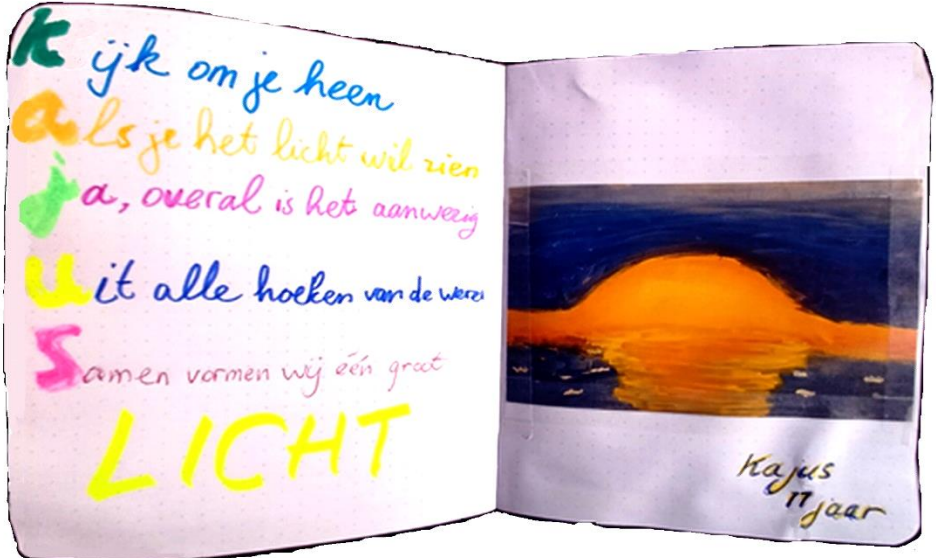 Kijk om je heen
als je het licht wil zien
ja, overal is het aanwezig
Uit alle hoeken van de
Samen vormen wij één groot
LICHT
Kajus
17 jaar